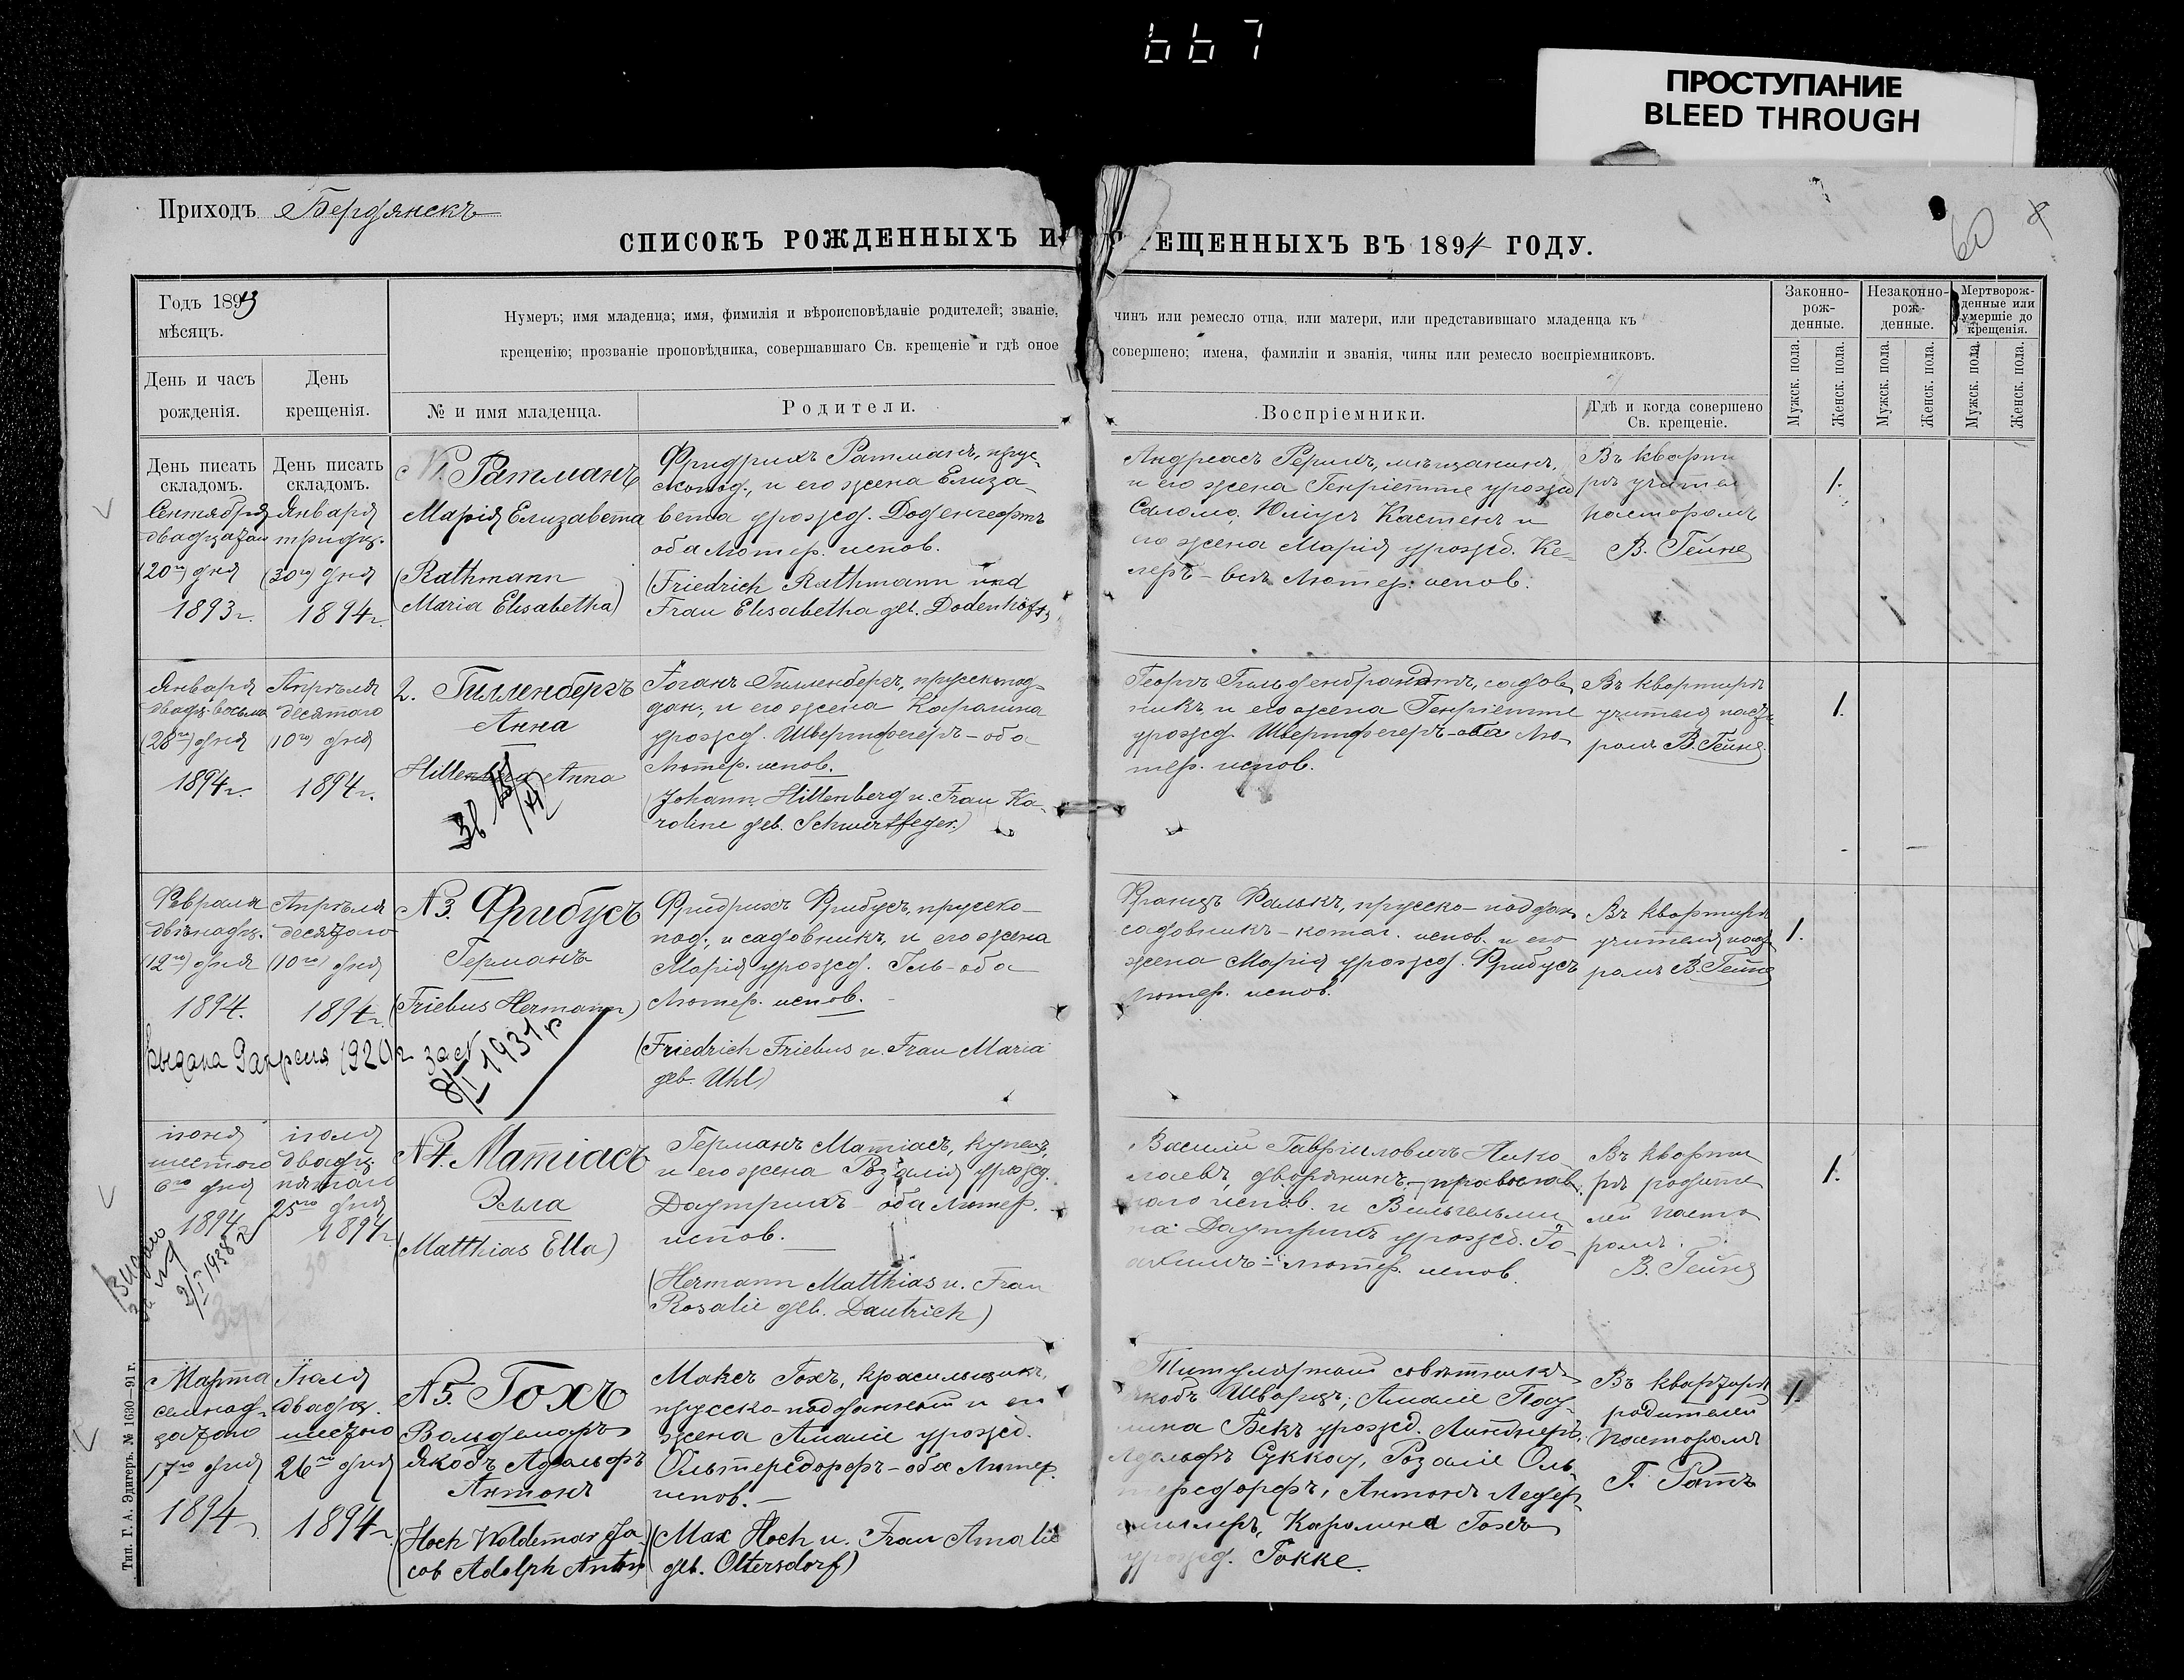 667
ПРОСТУПАНИЕ
BLEED THROUGH
Приходъ Бердянскъ
СПИСОКЪ РОЖДЕННЫХЪ И КРЕЩЕННЫХЪ ВЪ 1894 ГОДУ.
60
Годъ 1894
мѣсяцъ.
День и часъ рожденія.
День крещенія.
Нумеръ; имя младенца; имя, фимилія и вѣроисповѣданіе родителей; званіе, чинъ или ремесло отца, или матери, или представившаго младенца къ
крещенію; прозваніе проповѣдника, совершавшаго Св. крещеніе и гдѣ оное совершено; имена, фамиліи и званія, чины или ремесло воспріемниковъ.
№ и имя младенца.
Родители.
Воспріемники.
Гдѣ и когда совершено Св. крещеніе.
Законно-рож-денные.
Незаконно-рож-денные.
Мертворож-денные или умершіе до крещенія.
Мужск. пола.
Женск. пола.
Мужск. пола.
Женск. пола.
Мужск. пола.
Женск. пола.
День писать складомъ.
День писать складомъ.
Сентября
(20го) дня
1893 г.
Января
тридц.
(30го) дня
1894 г.
Ратманъ
Марія Елизавета
(Rathmann
Maria Elisabetha)
Фридрихъ Ратманъ, прус-
и его жена Елиза-
вета урожд. Доденгефтъ
оба лютер. испов.
(Friedrich Rathmann und
Frau Elisabetha geb. Dodenhöft)
Андреасъ мѣщанинъ,
и его жена Генріетте урожд
Юліусъ Кастенъ и
его жена Марія урожд. Ке-
леръ - всѣ лютер. испов.
Въ кварти
рѣ учителя
пасторомъ
В. Гейне
1.
Января
двадц. восьм
(28го) дня
1894 г.
Апрѣля
десятаго
(10го) дня
1894 г.
2. Гилленбергъ
Анна
Hillenberg Anna
Іоганъ Гилленбергъ, прусскопод-
дан., и его жена Каролина
урожд. Швертфегеръ - оба
лютер. испов.
(Johann Hillenberg u. Frau Ka-
roline geb. Schwertfeger.)
Георгъ Гильденбрандтъ, садов
никъ, и его жена Генріетте
урожд. Швертфегеръ - оба лю-
тер. испов.
Въ квартирѣ
учителя паст
ромъ В. Гейне
1.
Февраля
двѣнадц.
(12го) дня
1894.
Апрѣля
десятого
(10го) дня
1894 г.
N 3. Фрибусъ
Германъ
(Friebus Hermann)
Фридрихъ Фрибусъ, прусско-
под., и садовникъ, и его жена
Марія урожд. Гль - оба
лютер. испов.
(Friedrich Friebus u. Frau Maria
geb. Uhl)
Францъ Фалькъ, прусско-поддан
садовникъ - катол. испов. и его
жена Марія урожд. Фрибусъ
лютер. испов.
Въ квартирѣ
учителя паст
ромъ В. Гейне
1.
Выдана 9 апреля 1920 г
8/I 1931 р
іюня
шестого
6го дня
1894 г
іюля
двадц.
пятаго
25го дня
1894 г
N 4. Матіасъ
Элла
(Matthias Ella)
Германъ Матіасъ, купецъ,
и его жена Розалія урожд.
Даутрихъ - оба лютер.
испов.
(Hermann Matthias u. Frau
Rosalie geb. Dautrich)
Василій Гавріиловичъ Нико
лаевъ, дворянинъ - православ
наго испов. и Вильгельми
на Даутрихъ урожд. Іо-
ахимъ - лютер. испов.
Въ кварти
рѣ родите
лей пасто
ромъ
В. Гейне
1.
2/I 1938 г
Марта
семнад-
цатого
17го дня
1894
Іюля
двадц.
шестого
26го дня
1894 г
N 5. Гохъ
Вольдемаръ
Якобъ Адольфъ
Антонъ
(Hoch Woldemar Ja-
cob Adolph Anton)
Максъ Гохъ, красильщикъ,
прусско-подданный и его
жена Амаліе урожд.
Ольтередорфъ - оба лютер.
испов. -
(Max Hoch u. Frau Amalie
geb. Oltersdorf)
Титулярный совѣтникъ
Якобъ Шварцъ; Амаліе Пау-
лина Бекъ урожд. Линднеръ,
Адольфъ Суккау, Розаліе Оль
тередорфъ, Антонъ Ледер
Каролина Гохъ
урожд. Гокке.
Въ квартирѣ
родителей
пасторомъ
Г. Ратъ
1.
Тип. Г. А. Эдигеръ. № 1630—91 г.